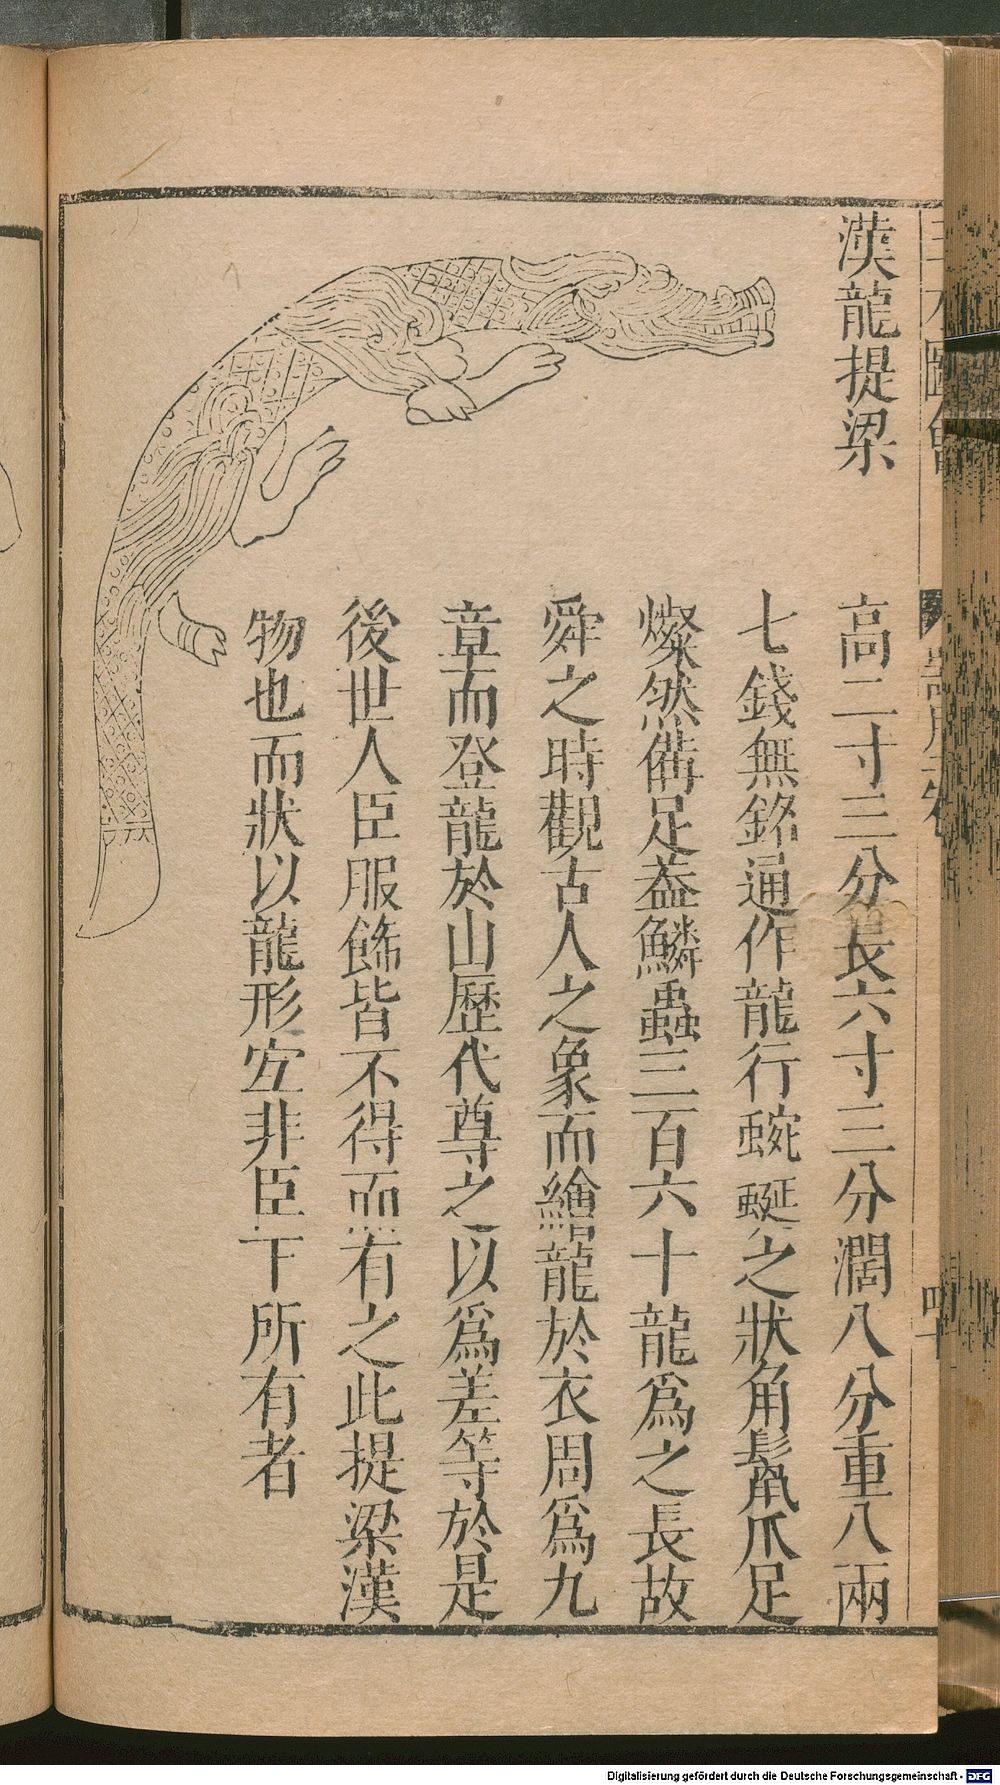 漢龍提梁
高二寸三分長六寸三分濶八分重八兩
七錢無銘通作龍行蜿蜒之狀角鬛爪足
燦然僃足葢鱗蟲三百六十龍爲之長故
舜之時觀古人之象而繪龍於衣周爲九
章而登龍於山歷代尊之以爲差等於是
後世人臣服飾皆不得而有之此提梁漢
物也而狀以龍形㝎非臣下所有者
Digitalisierung gefördert durch die Deutsche Forschungsgemeinschaft - DFG